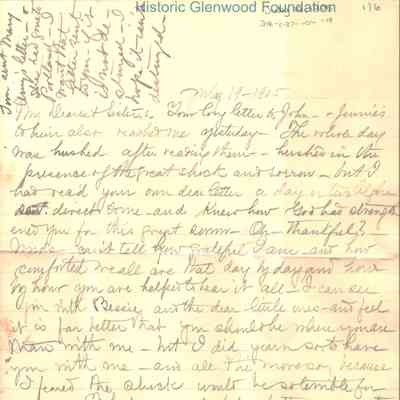 Historic Glenwood Foundation
176
Tom sent Mary
letter - &
she has gone to
Portland - I
want that
letter sent
to you - It is
hope it isn't
destroyed -
May 19 - 1905
My Dearest Sister - Your long letter to John - & Jennie's
to him also reached me yesterday - The whole day
was hushed after reading them - hushed in the
presence of the great shock and sorrow - but I
had read your own dear letter a day or two before
sent direct to me - and knew how God has strength
ened you for this great sorrow - Oh - thankful
can't tell how grateful I am - and how
comforted we all are that day by day and hour
by hour you are helped to bear it all - I can see
you with Bessie, and the dear little ones - and feel
it is far better that you should be where you are
than with me - but I did yearn so to have
you with me - and all the more so, because
I feared the shock would be so terrible for